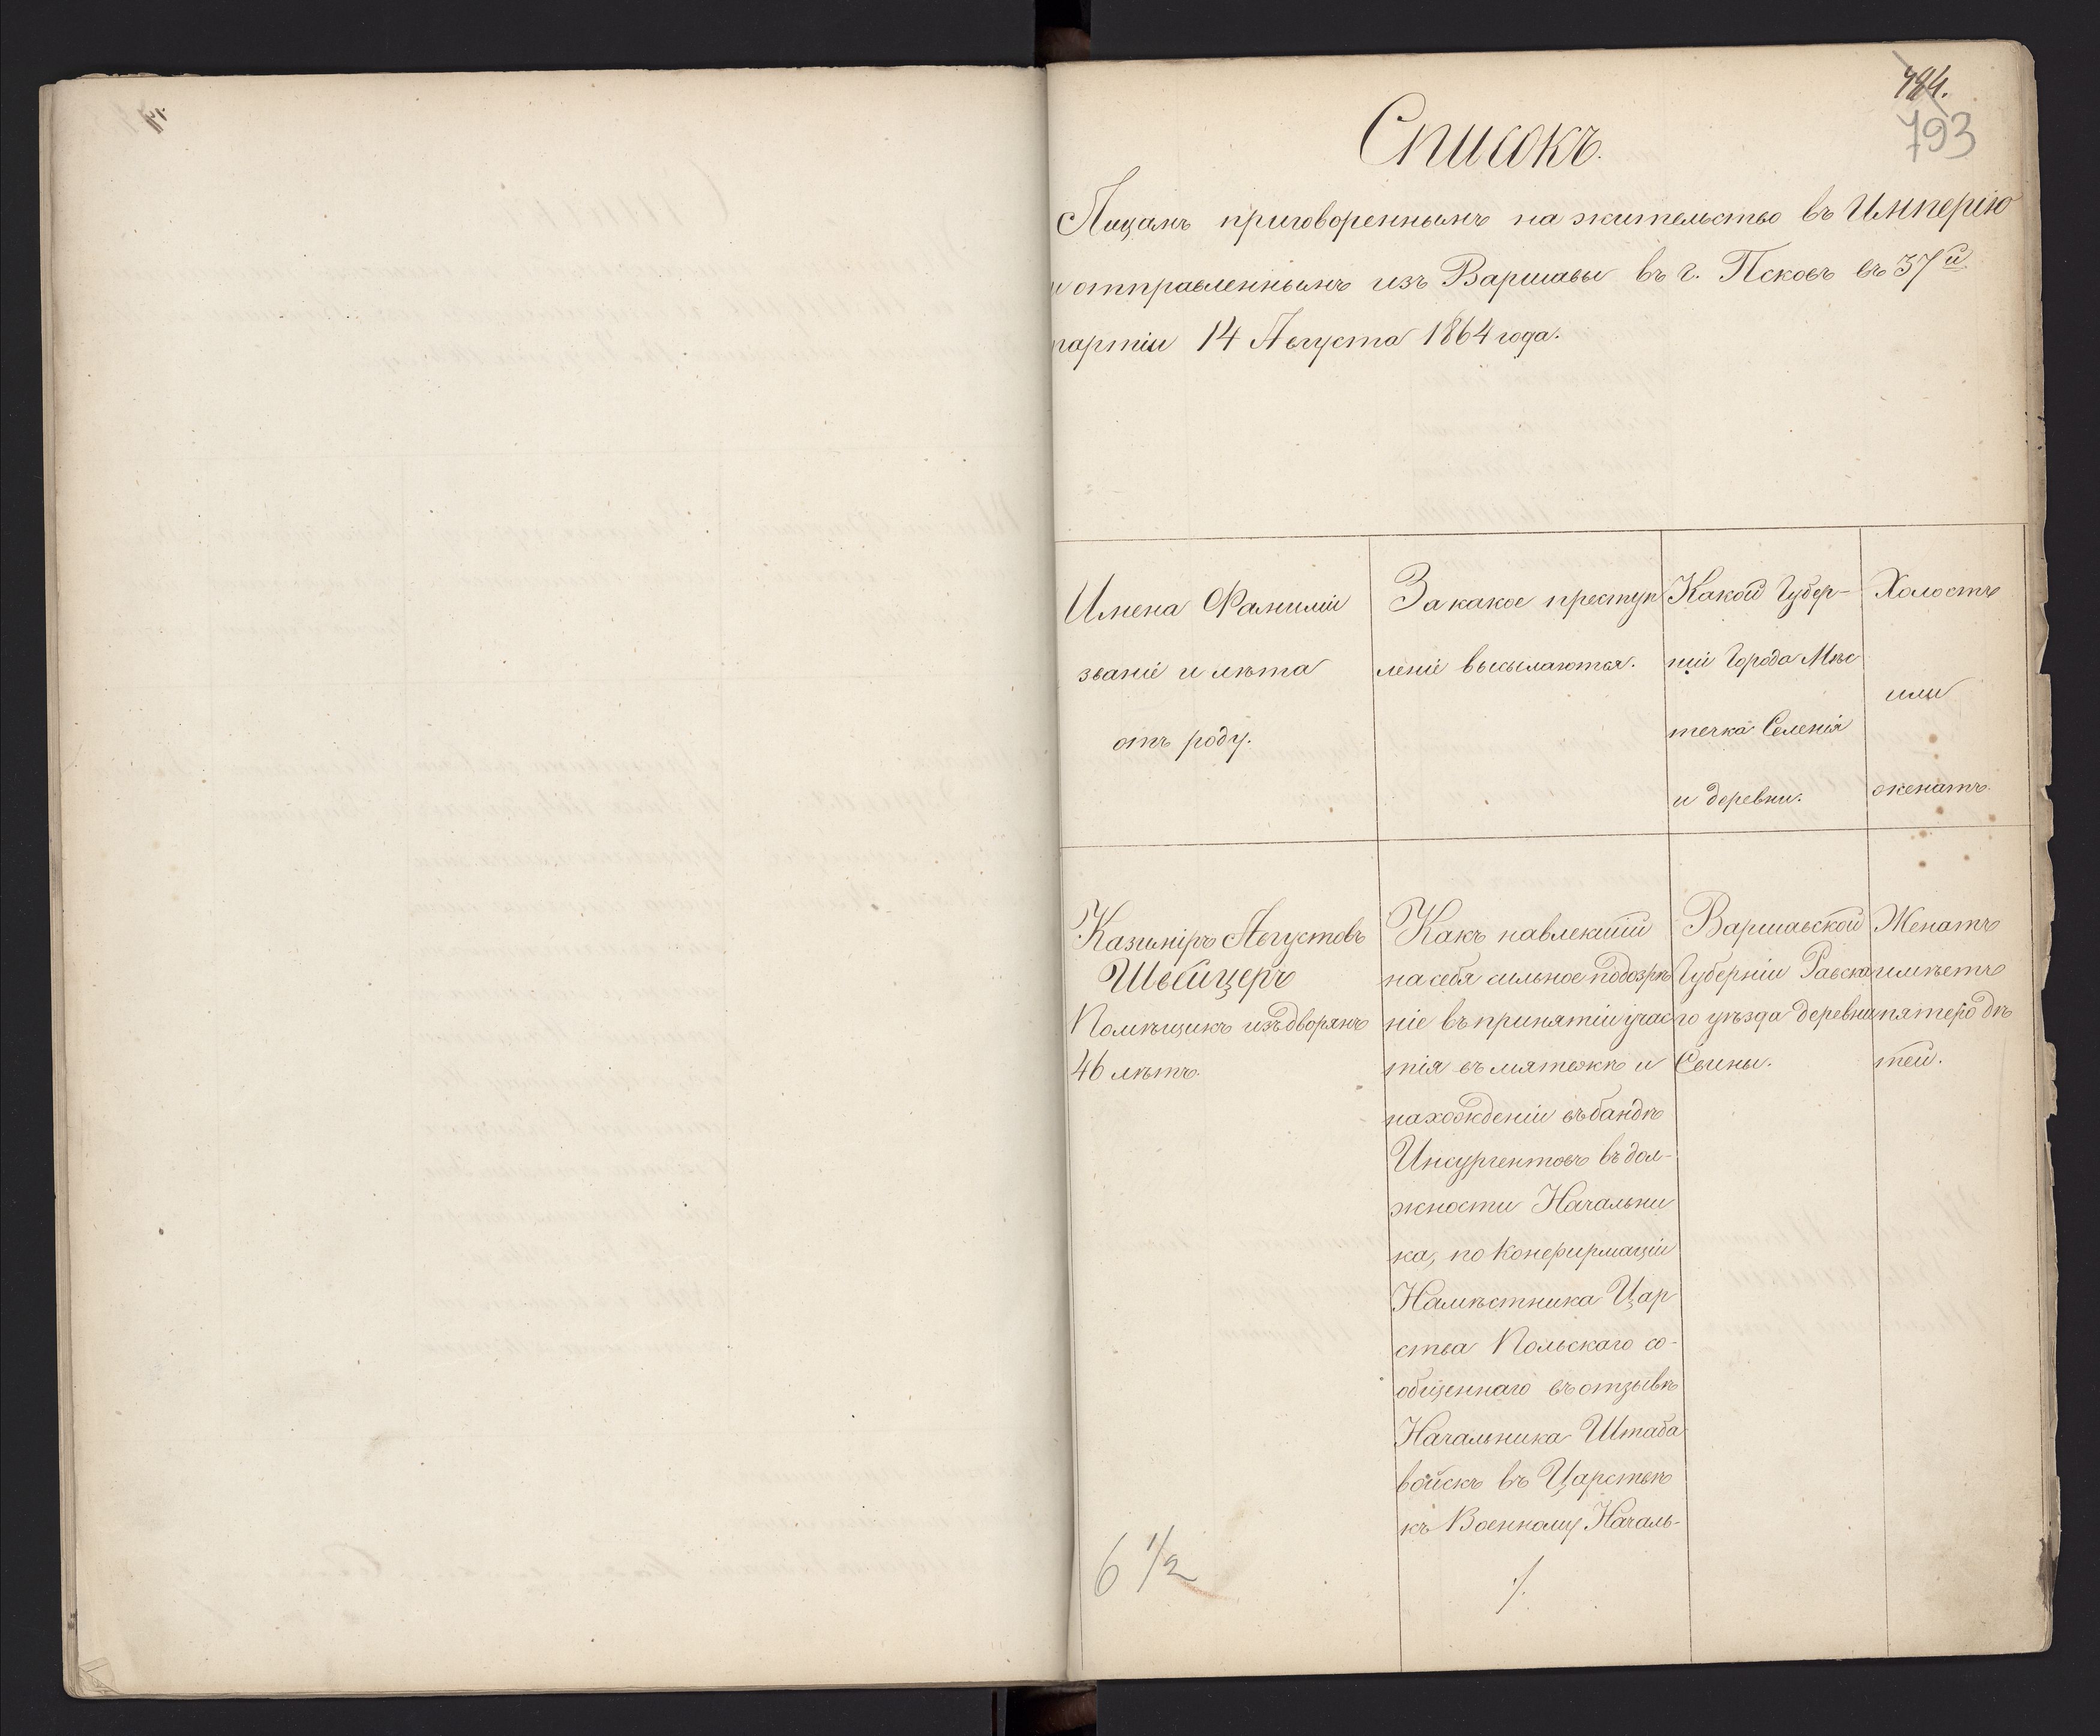 793
Списокъ.
Лицамъ приговореннымъ на жительство въ Имперію
и отправленнымъ изъ Варшавы въ г. Псковъ въ 37й
партіи 14 Августа 1864 года.
Имена Фамиліи
званіе и лѣта
отъ роду.
За какое преступ
леніе высылаются.
Какой Губер-
ніи Города Мѣс
течка Селенія
и деревни.
Холостъ
или
женатъ.
Казиміръ Августовъ
Швейцеръ
Помѣщикъ изъ дворянъ
46 лѣтъ.
Какъ навлекшій
на себя сильное подозрѣ
ніе въ принятіи учас
тія въ мятежѣ и
нахожденіи въ бандѣ
Инсургентовъ въ дол-
жности Начальни
ка, по Конфирмаціи
Намѣстника Цар
ства Польскаго со-
общеннаго въ отзывѣ
Начальника Штаба
войскъ въ Царствѣ
къ Военному Началь-
./.
Варшавской
Губерніи Равска
го уѣзда деревни
Свины.
Женатъ
имѣетъ
пятеро дѣ
тей.
6 1/2